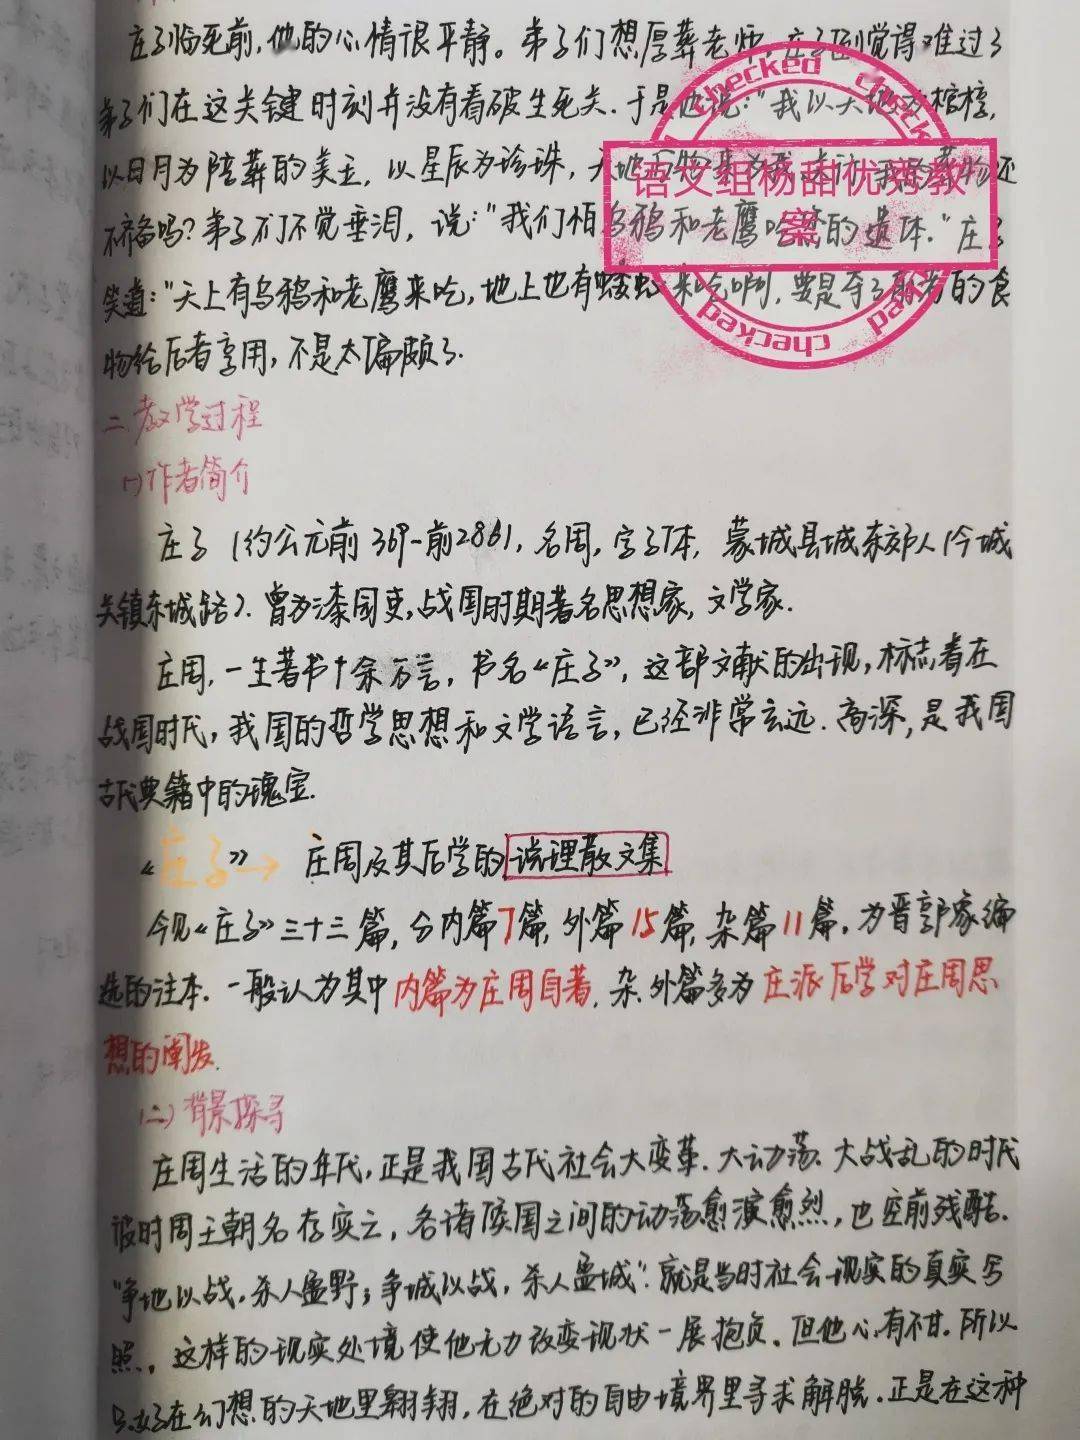 庄子临死前,他的心情很平静。弟子们想厚葬老师,庄子倒觉得难过了
弟子们在这关键时刻并没有看破生死关.于是他说:"我以天地为棺椁,
以日月为陪葬的美玉,以星辰为珍珠,天地万物来为我送行,我的葬物还
不齐备吗?弟子们不觉垂泪,说:"我们怕乌鸦和老鹰吃的遗体."庄子
笑道:"天上有乌鸦和老鹰来吃,地上也有蝼蚁来吃啊,要是夺了前者的食
物给后者享用,不是太偏颇了.
checked checked checked
语文组杨甜优秀教
案
二.教学过程
(一)作者简介
庄子(约公元前369-前286),名周,字子休,蒙城县城东郊人(今城
关镇东城路).曾为漆园吏,战国时期著名思想家,文学家.
庄周,一生著书十余万言,书名《庄子》,这部文献的出现,标志着在
战国时代,我国的哲学思想和文学语言,已经非常玄远.高深,是我国
古代典籍中的瑰宝.
《庄子》→ 庄周及其后学的说理散文集
今见《庄子》三十三篇,分内篇7篇,外篇15篇,杂篇11篇.为晋郭象编
选的注本.一般认为其中内篇为庄周自著.杂.外篇多为庄派后学对庄周思
想的阐发.
(二)背景探寻
庄周生活的年代,正是我国古代社会大变革.大动荡.大战乱的时代
彼时周王朝名存实亡,各诸侯国之间的动荡愈演愈烈,也空前残酷.
"争地以战,杀人盈野;争城以战,杀人盈城".就是当时社会现实的真实写
照.这样的现实处境使他无力改变现状一展抱负.但他心有不甘.所以
只好在幻想的天地里翱翔,在绝对的自由境界里寻求解脱.正是在这种